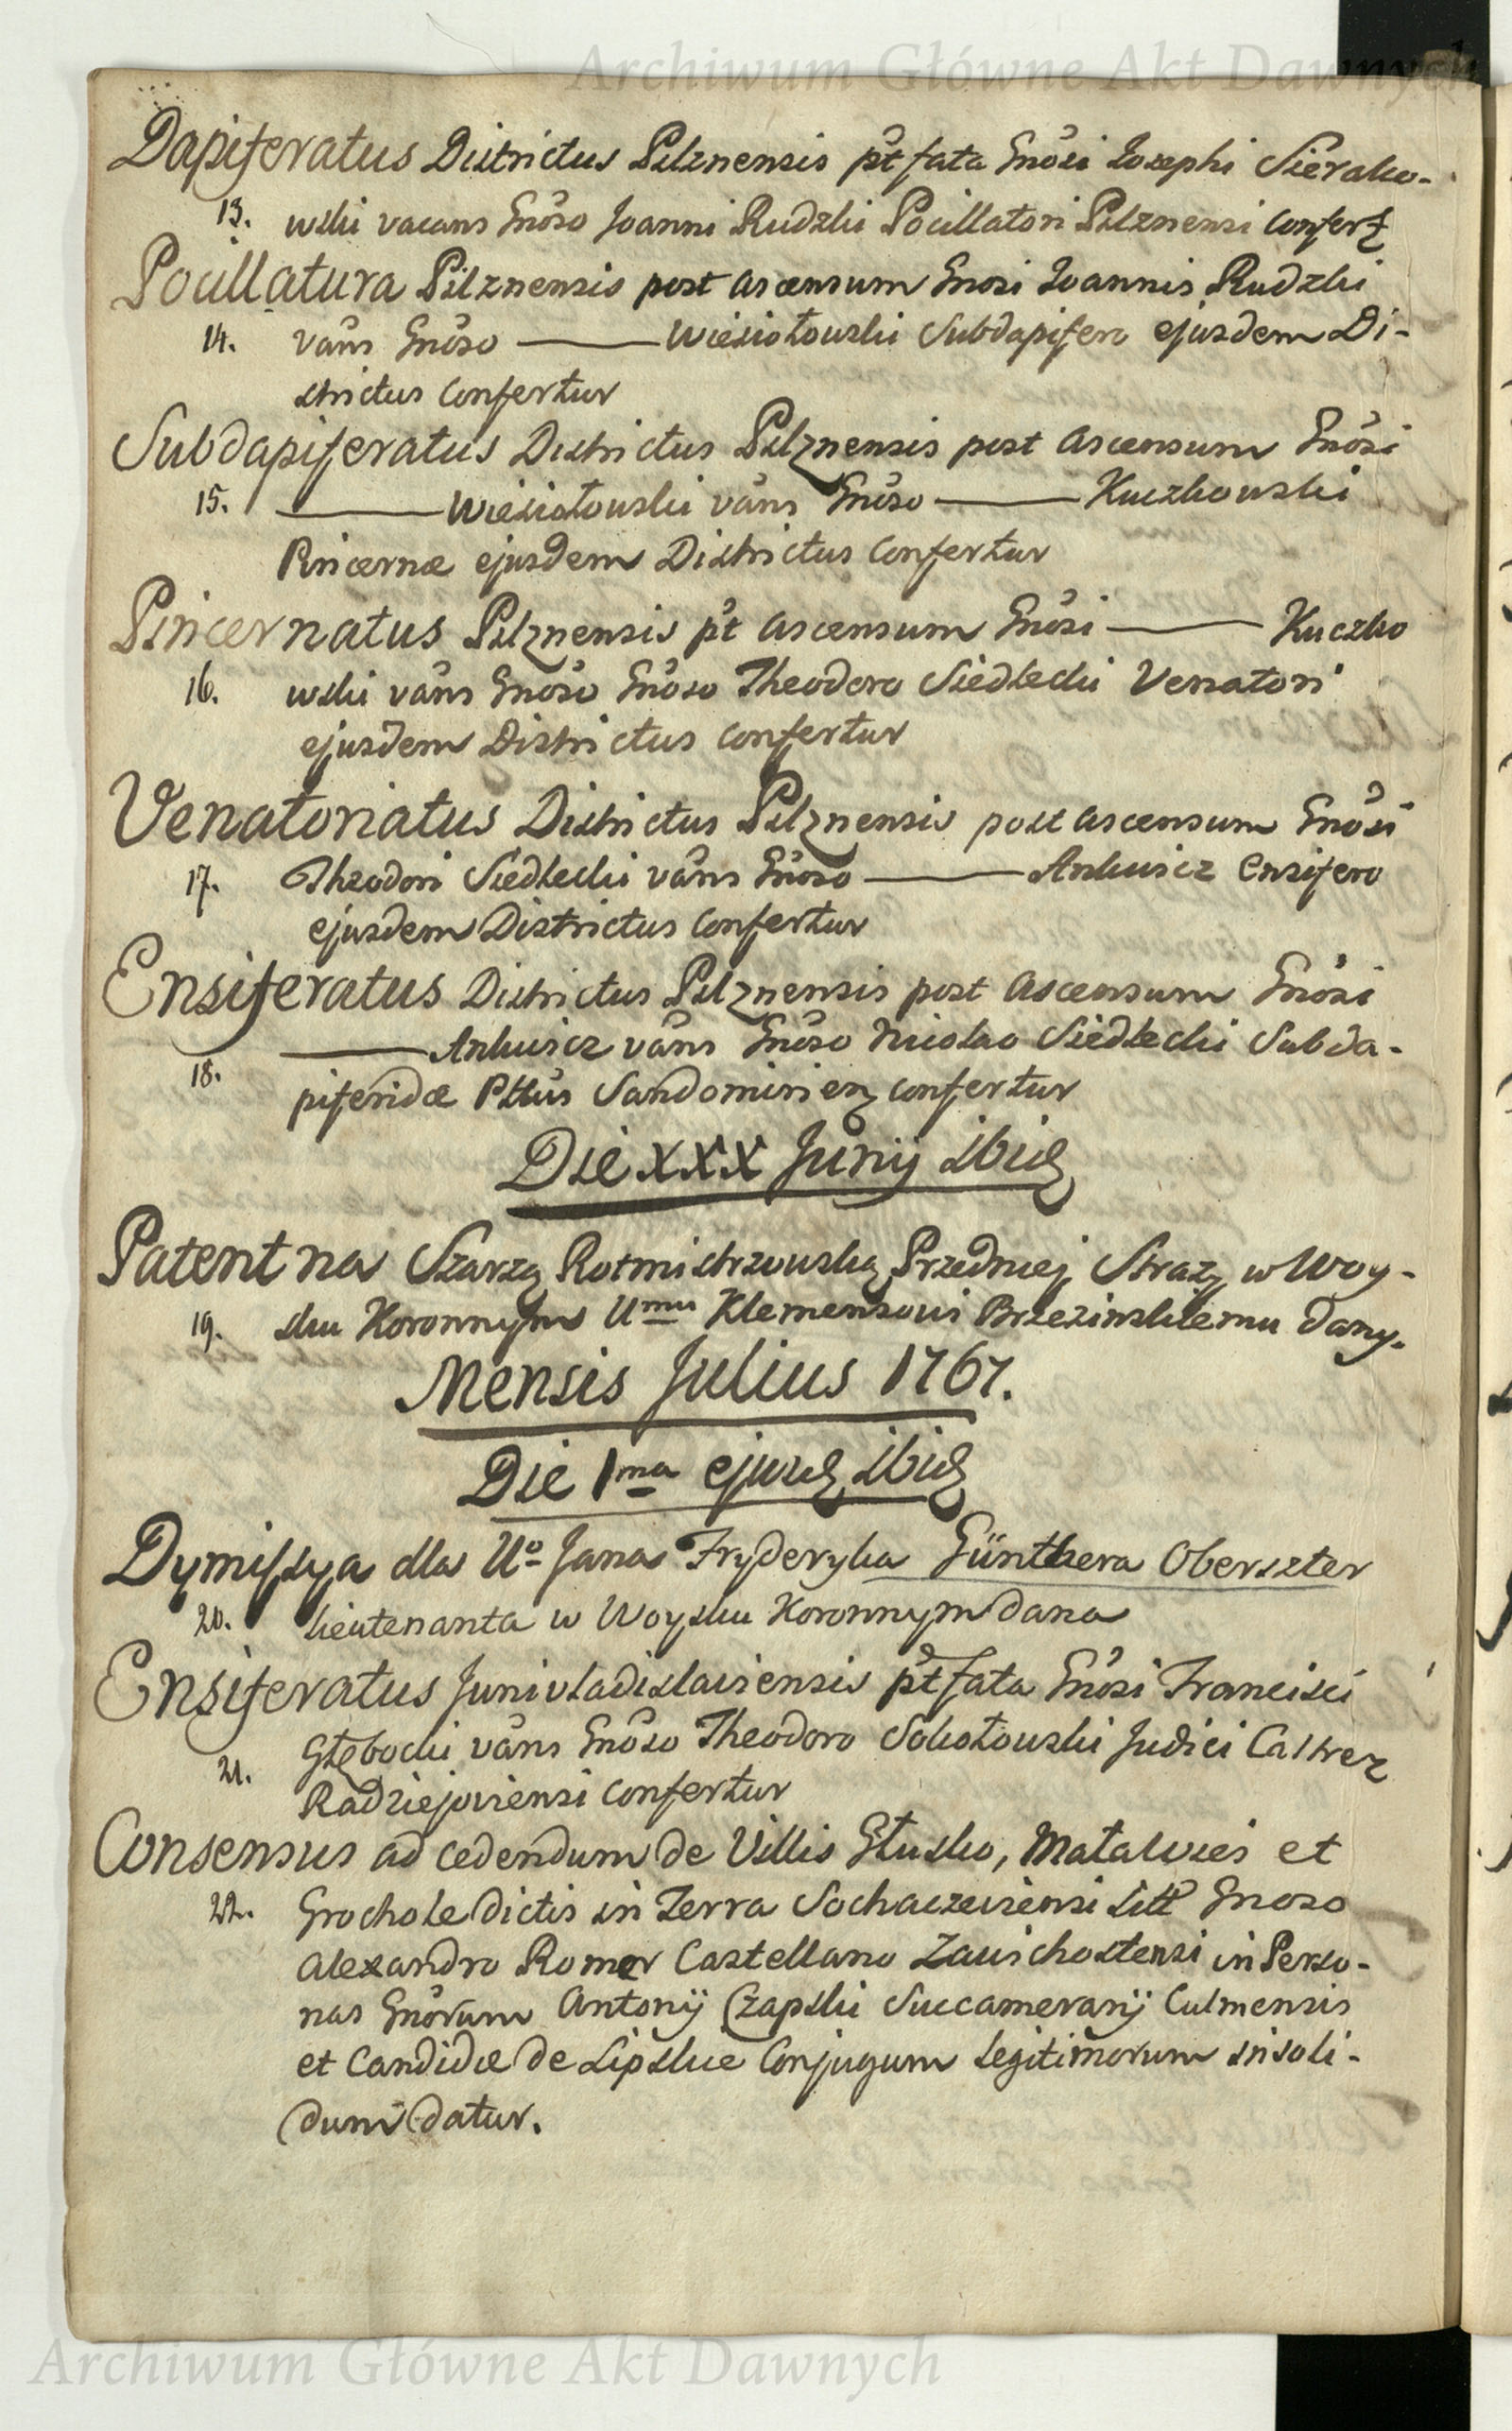 Archiwum Główne Akt Dawnych
Dapiferatus Districtus Pilznensis p̃t fata Gnõsi Josephi Sierako-
13. wski vacans Gnõso Joanni Rudzki Pocillatori Pilznensi confert
Pocillatura Pilznensis post ascensum Gnosi Joannis Rudzki
14. vãns Gnõso ——— Wiesiołowski Subdapifero ejusdem Di-
strictus confertur
Subdapiferatus Districtus Pilznensis post ascensum Gnõsi
15. ——— Wiesiołowski vãns Gnõso ——— Kuczkowski
Pincernæ ejusdem Districtus confertur
Pincernatus Pilznensis p̃t ascensum Gnõsi ——— Kuczko
16. wski vãns Gnõso Gnõso Theodoro Siedlecki Venatori
ejusdem Districtus confertur
Venatoriatus Districtus Pilznensis post ascensum Gnõsi
17. Theodori Siedlecki vãns Gnõso ——— Ankwicz Ensifero
ejusdem Districtus confertur
Ensiferatus Districtus Pilznensis post ascensum Gnõsi
——— Ankwicz vãns Gnõso Nicolao Siedlecki Subda-
18. piferidæ Pttũs Sandomirien confertur
Die XXX Junij ibid
Patent na Szarzą Rotmistrzowską Przedniej Straży w Woy-
19. sku Koronnym Umu Klemensowi Brzezinskiemu dany.
Mensis Julius 1767.
Die 1ma ejusd ibid
Dymissya dla Uo Jana Fryderyka Günthera Oberszter
20. lieutenanta w Woysku Koronnym dana
Ensiferatus Junivladislaviensis p̃t fata Gnõsi Francisci
21. Głębocki vãns Gnõso Theodoro Sokołowski Judici Castren
Radziejoviensi confertur
Consensus ad cedendum de Villis Głusko, Matawieś et
22. Grochole dictis in Terra Sochaczewiensi sitt Gnoso
Alexandro Romer Castellano Zawichostensi in Perso-
nas Gnõrum Antonij Czapski Succamerarij Culmensis
et Candidæ de Lipskie Conjugum legitimorum insoli-
dum datur.
Archiwum Główne Akt Dawnych